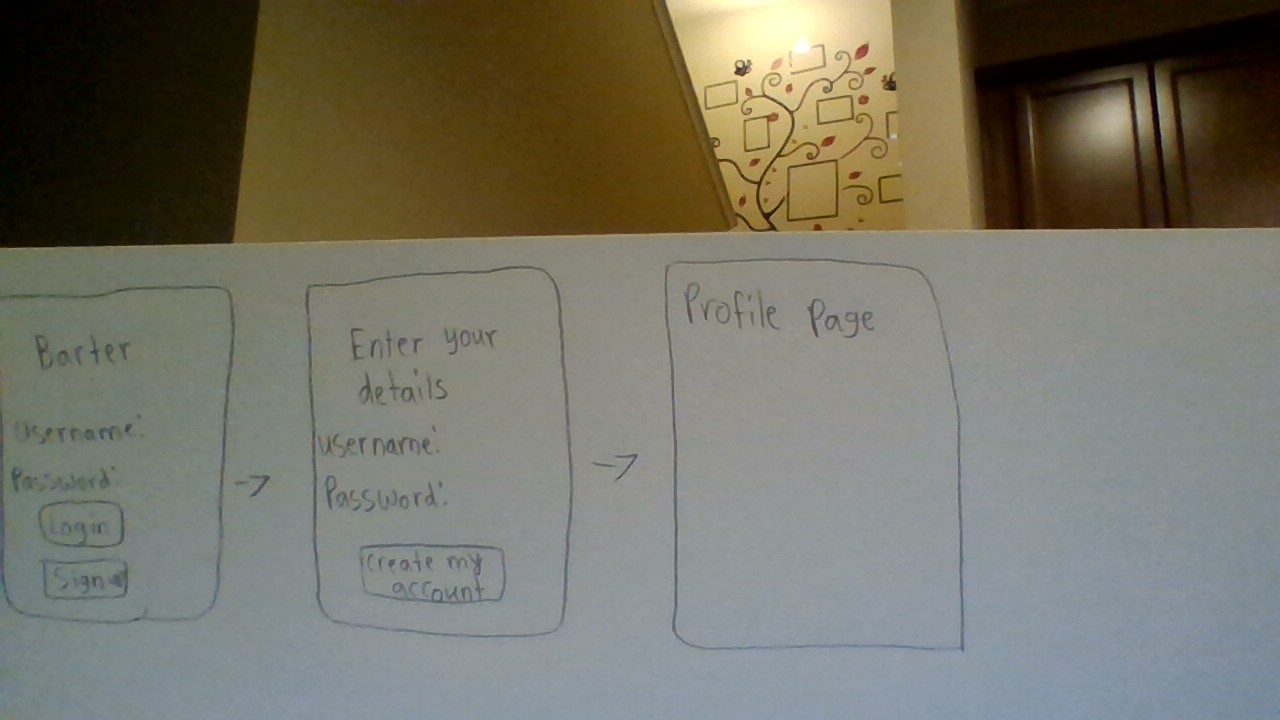 Barter
Username:
Password:
Login
Sign
Enter your
details
username:
Password:
create my
account
Profile Page